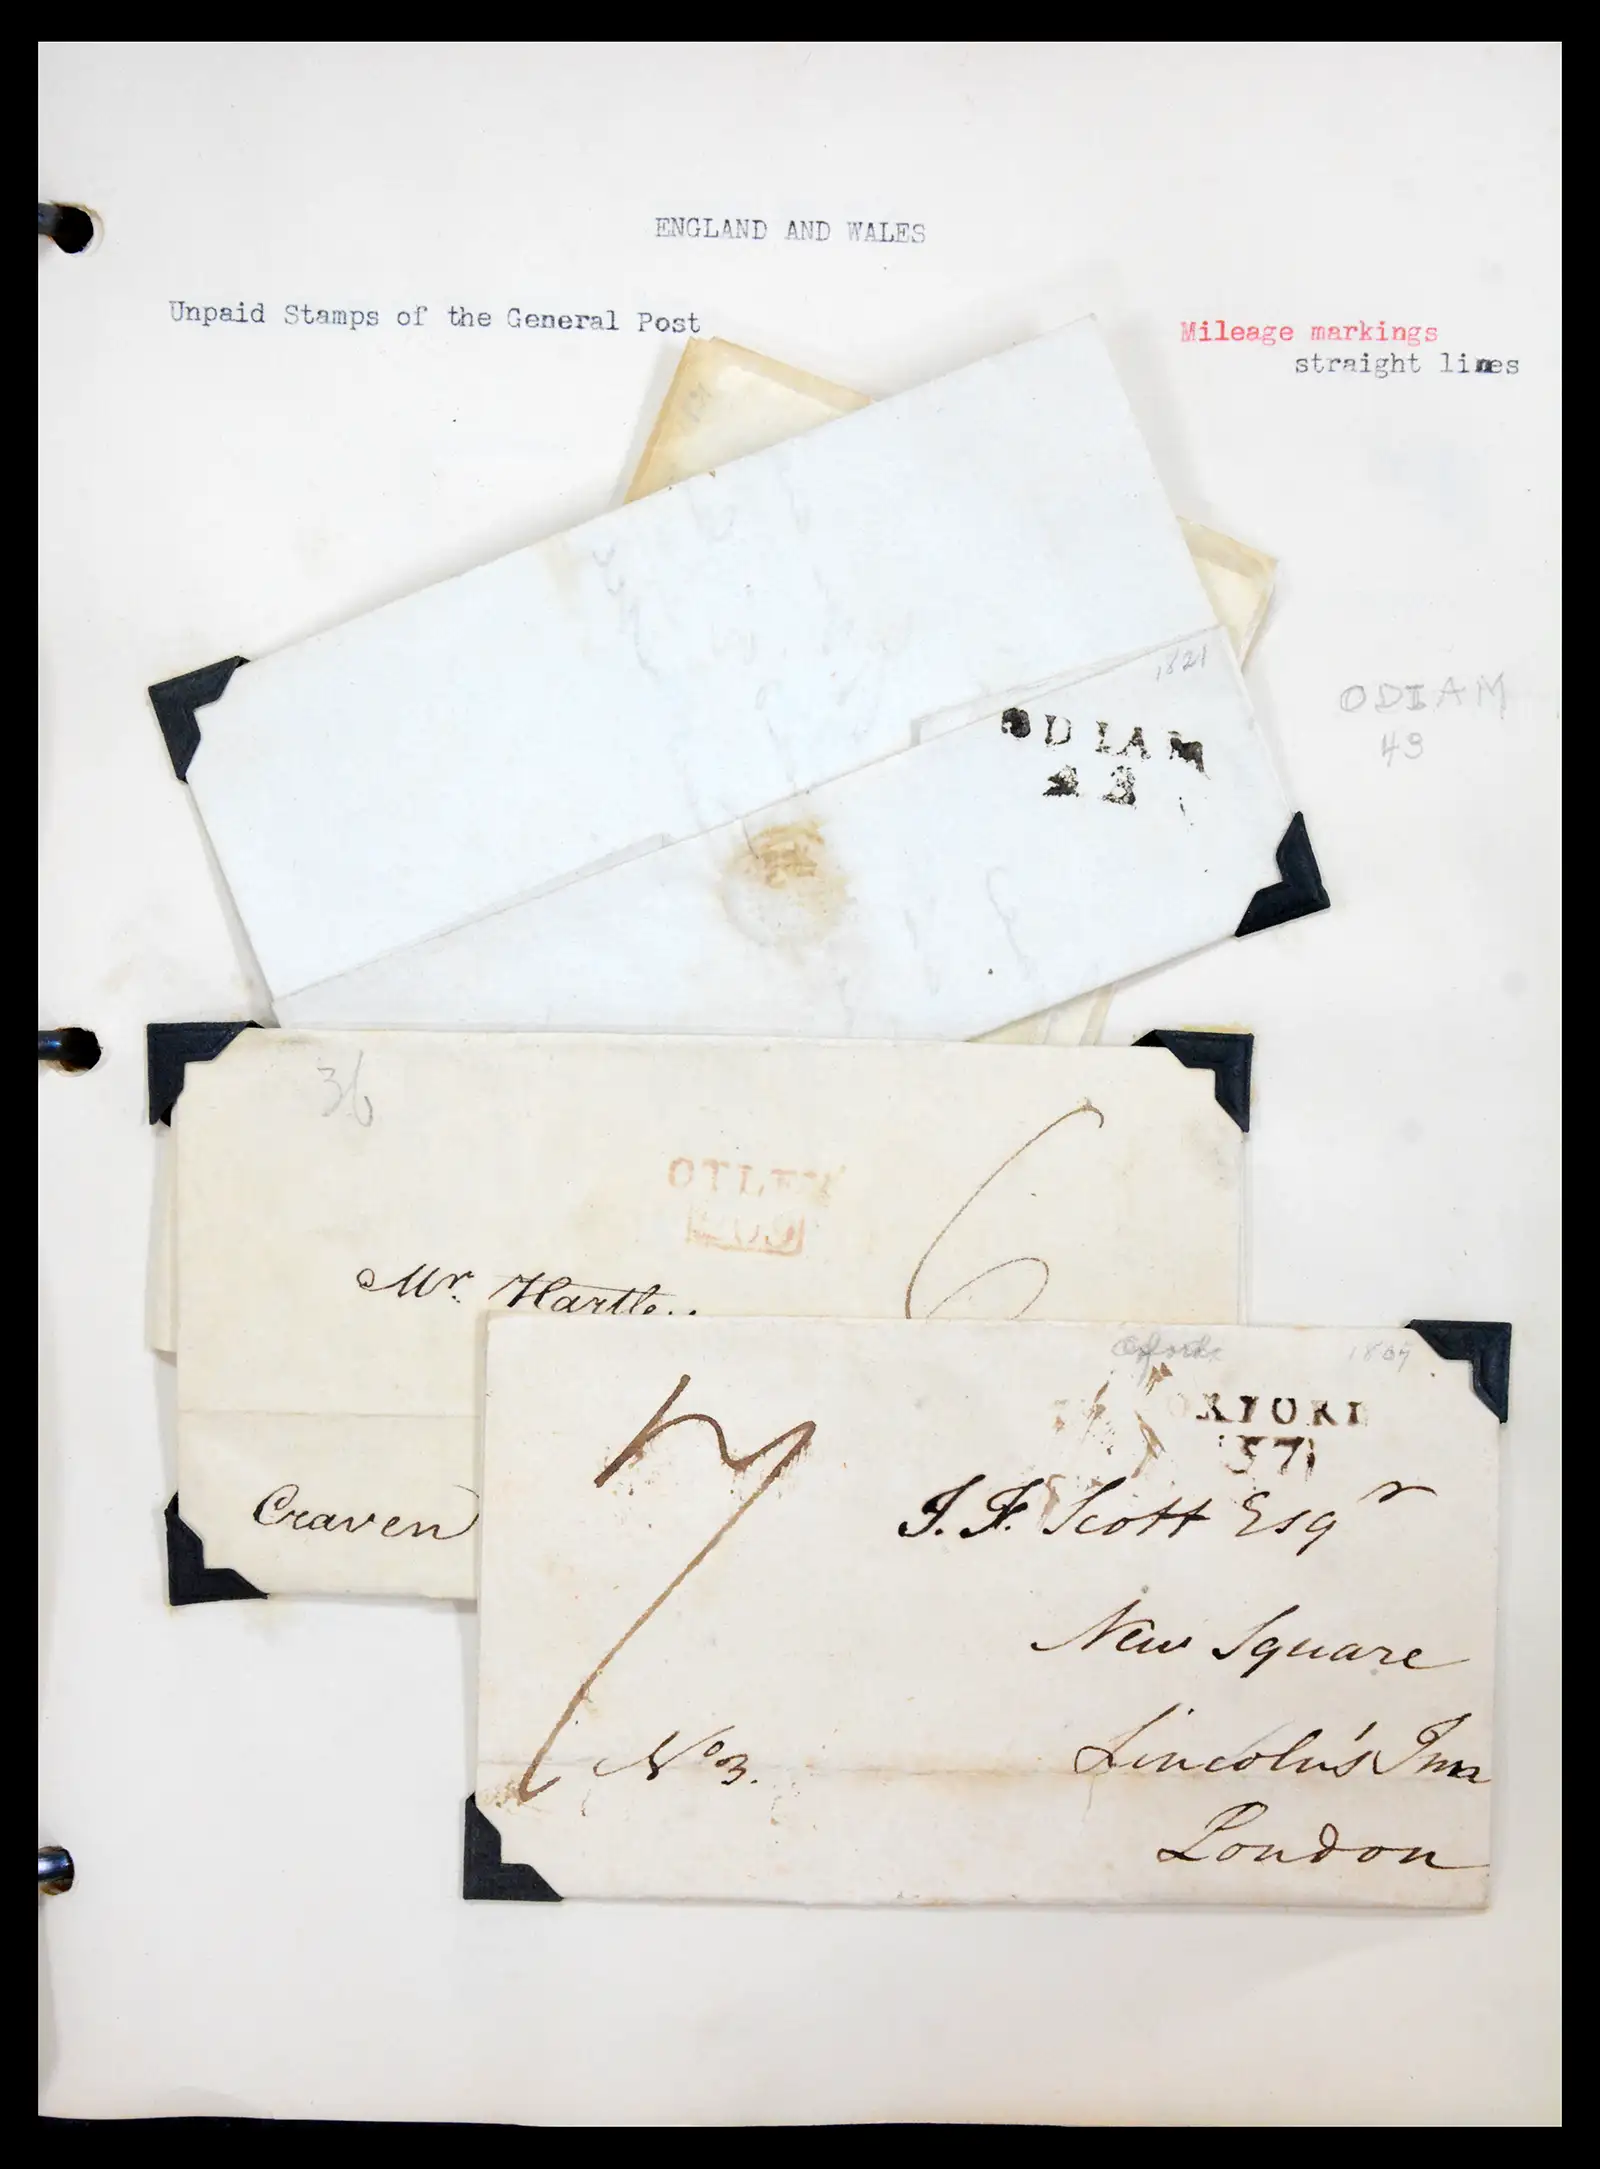 ENGLAND AND WALES
Unpaid Stamps of the General Post
Mileage markings
straight lines
1821
ODIAM
43
ODIAM
43
36
OTLEY
6
Mr. Hartle
Craven
Oxford
1807
OXFORD
57
7
J. F. Scott Esqr
New Square
No 3.
Lincoln's Inn
London